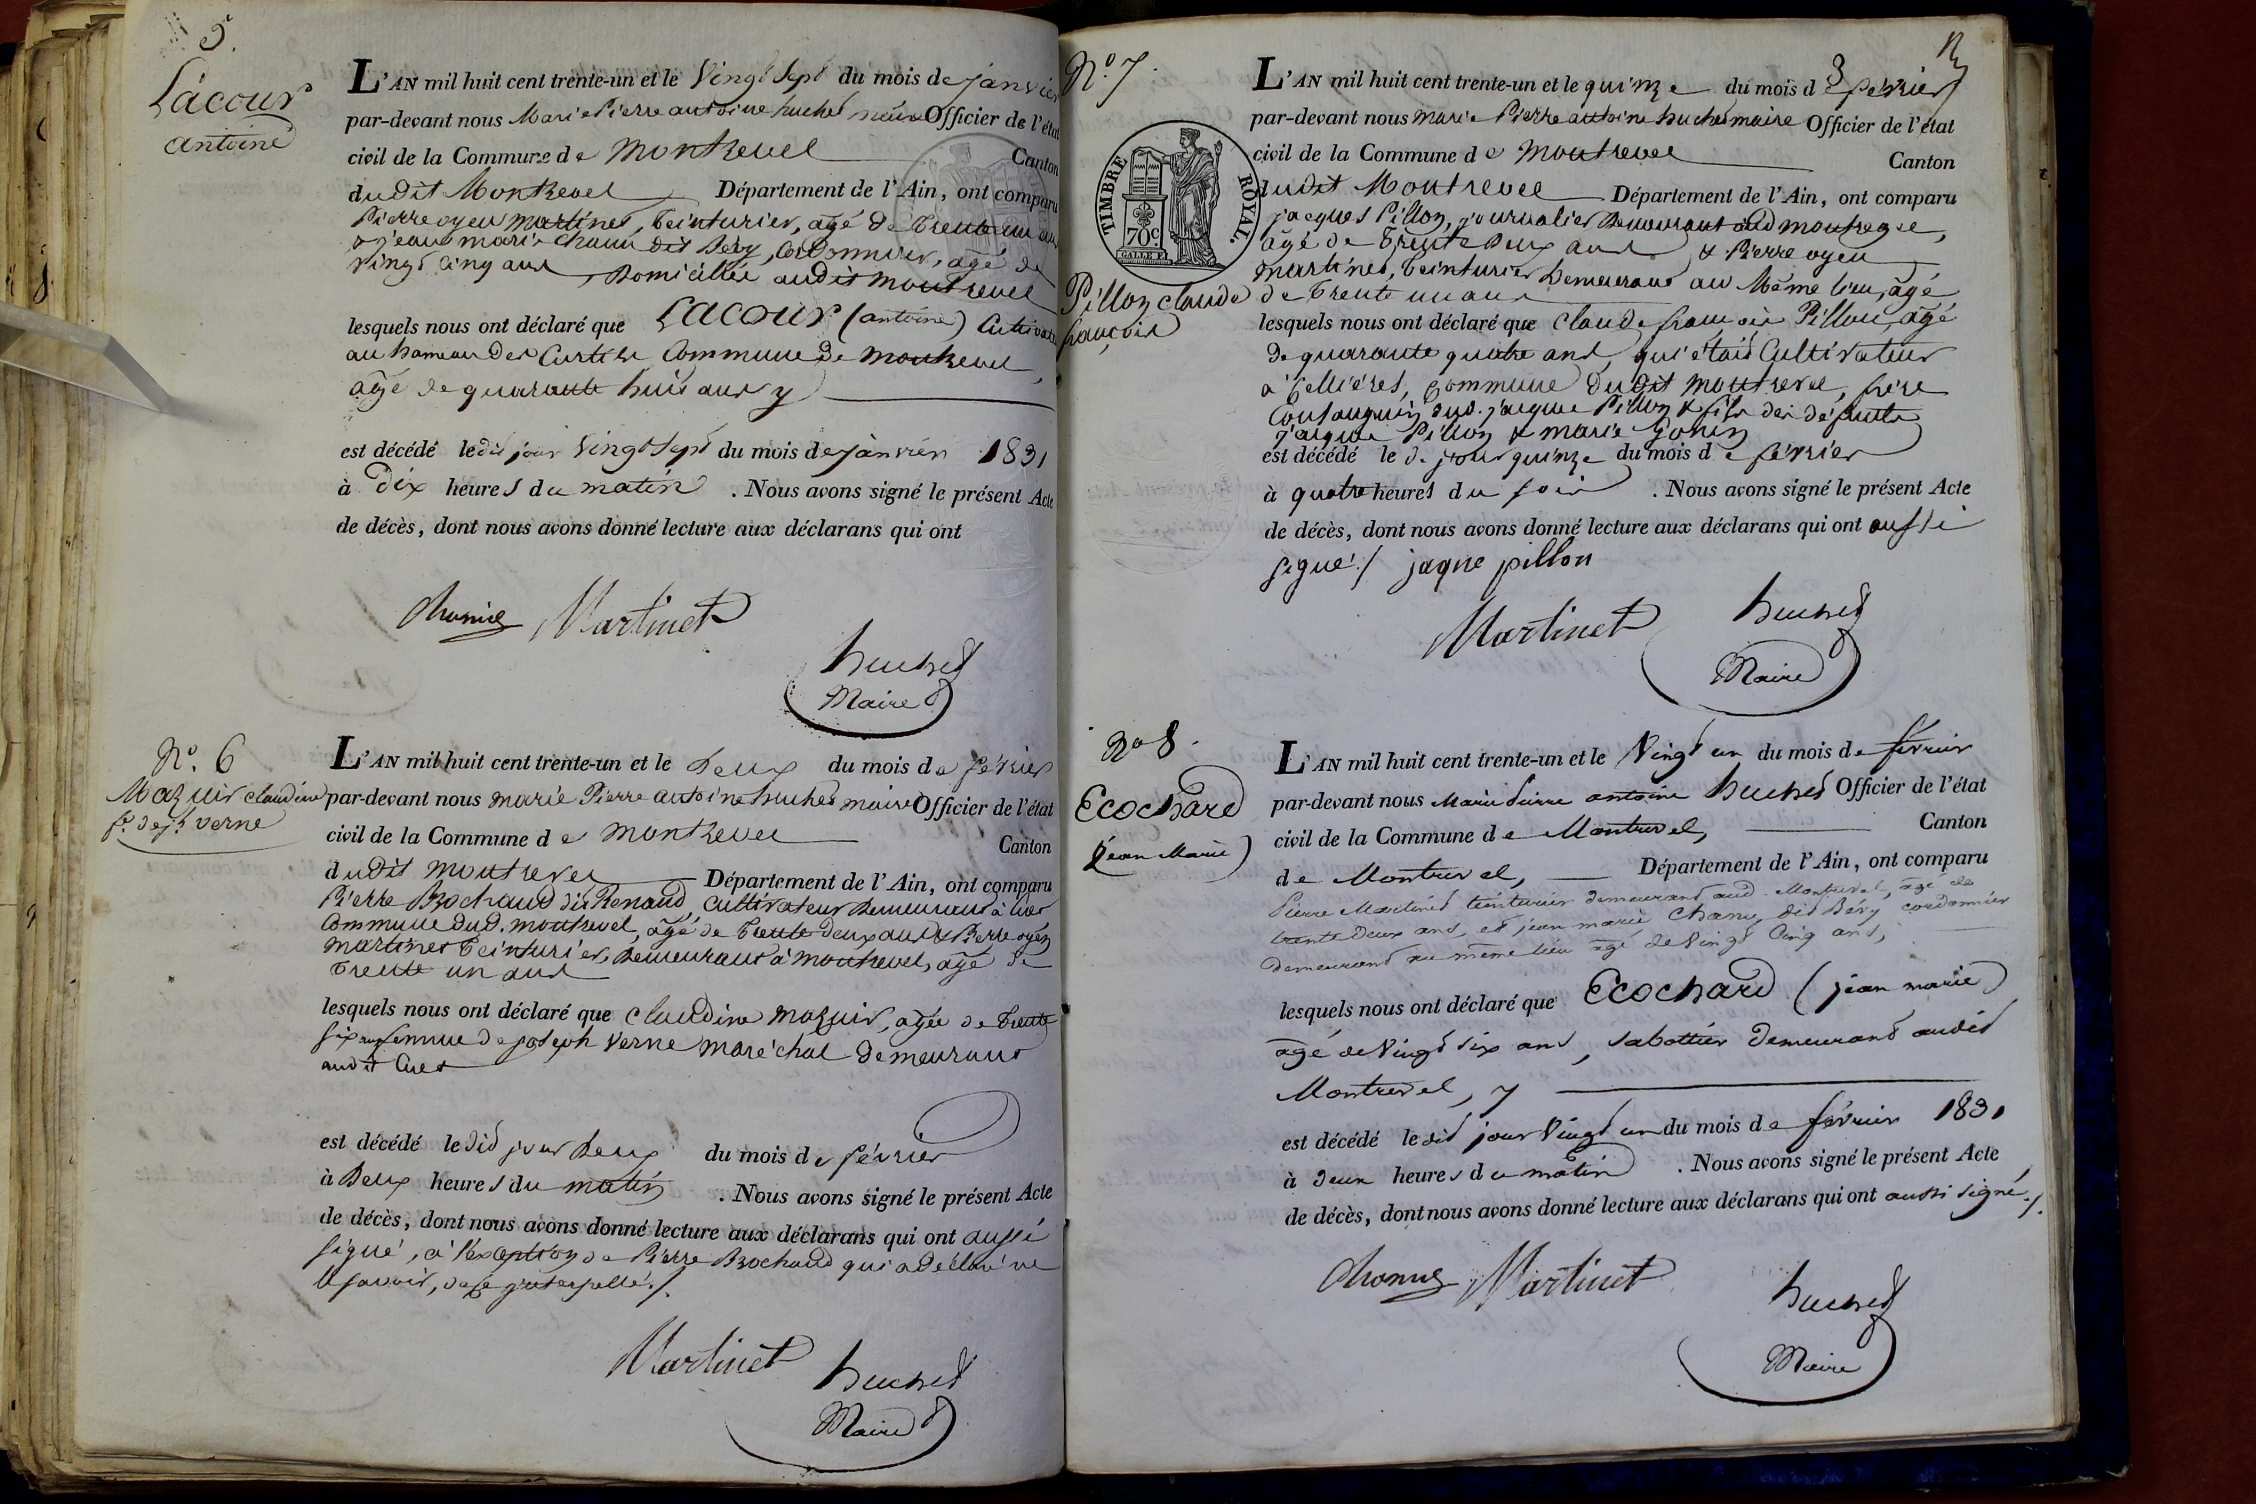 5.
Lacour
antoine
L'AN mil huit cent trente-un et le Vingt Sept du mois de janvier
par-devant nous Marie Pierre antoine huchet maire Officier de l'état
civil de la Commune de Montrevel Canton
dudit Montrevel Département de l'Ain, ont comparu
Pierre oyen Martinet, teinturier, agé de trente un ans
& jean marie chanu dit Bévy, Cordonnier, agé de
vingt cinq ans, Domiciliés audit montrevel
lesquels nous ont déclaré que LACOUR (antoine) Cultivateur
au hameau des Curtils Commune de montrevel,
agé de quarante huit ans y
est décédé ledit jour Vingt Sept du mois de janvier 1831
à Dix heures du matin. Nous avons signé le présent Acte
de décès, dont nous avons donné lecture aux déclarans qui ont
Martinet
huchet
Maire
N.o 6
Mazuir claudine
fe. de jh. verne
L'AN mil huit cent trente-un et le deux du mois de février
par-devant nous marie Pierre antoine huchet maire Officier de l'état
civil de la Commune de montrevel Canton
dudit montrevel Département de l'Ain, ont comparu
Pierre Brochaud dit Renaud, Cultivateur Demeurant à
Commune dud. montrevel, agé de trente deux ans & Pierre oyen
martinet teinturier, Demeurant à montrevel, agé de
trente un ans
lesquels nous ont déclaré que claudine mazuir, agée de trente
six ans femme de joseph Verne maréchal demeurant
audit
est décédé ledit jour Deux du mois de février
à Deux heures du matin. Nous avons signé le présent Acte
de décès, dont nous avons donné lecture aux déclarans qui ont aussi
signé, à l'exception de Pierre Brochaud qui a déclaré ne
le savoir, de ce interpellé./.
Martinet
huchet
Maire
N.o 7.
TIMBRE ROYAL.
70c
Pillon claude
françois
L'AN mil huit cent trente-un et le quinze du mois de février
par-devant nous marie Pierre antoine huchet maire Officier de l'état
civil de la Commune de montrevel Canton
dudit Montrevel Département de l'Ain, ont comparu
jacques Pillon, journalier Demeurant aud montrevel,
agé de trente deux ans & Pierre oyen
martinet, teinturier Demeurant au Même lieu, agé
de trente un ans
lesquels nous ont déclaré que Claude françois Pillon, agé
de quarante quatre ans qui était Cultivateur
à Cellières, Commune dudit montrevel, frère
Consanguin dud. jacque Pillon & fils des défunts
jacque Pillon & marie Gonin
est décédé le d. jour quinze du mois de février
à quatre heures du soir. Nous avons signé le présent Acte
de décès, dont nous avons donné lecture aux déclarans qui ont aussi
signé./ jaque pillon
Martinet
huchet
Maire
No 8.
Ecochard
(jean Marie)
L'AN mil huit cent trente-un et le Vingt un du mois de février
par-devant nous Marie Pierre antoine huchet Officier de l'état
civil de la Commune de Montrevel, Canton
de Montrevel, Département de l'Ain, ont comparu
Pierre Martinet teinturier demeurant aud. Montrevel, agé de
trente Deux ans, et jean marie Chanu, dit Bévy cordonnier
demeurant au même lieu agé de Vingt Cinq ans,
lesquels nous ont déclaré que ECOCHARD (jean marie)
agé de Vingt six ans, sabottier demeurant audit
Montrevel, y
est décédé ledit jour Vingt un du mois de février 1831
à deux heures du matin. Nous avons signé le présent Acte,
de décès, dont nous avons donné lecture aux déclarans qui ont aussi signé./.
Martinet
huchet
Maire